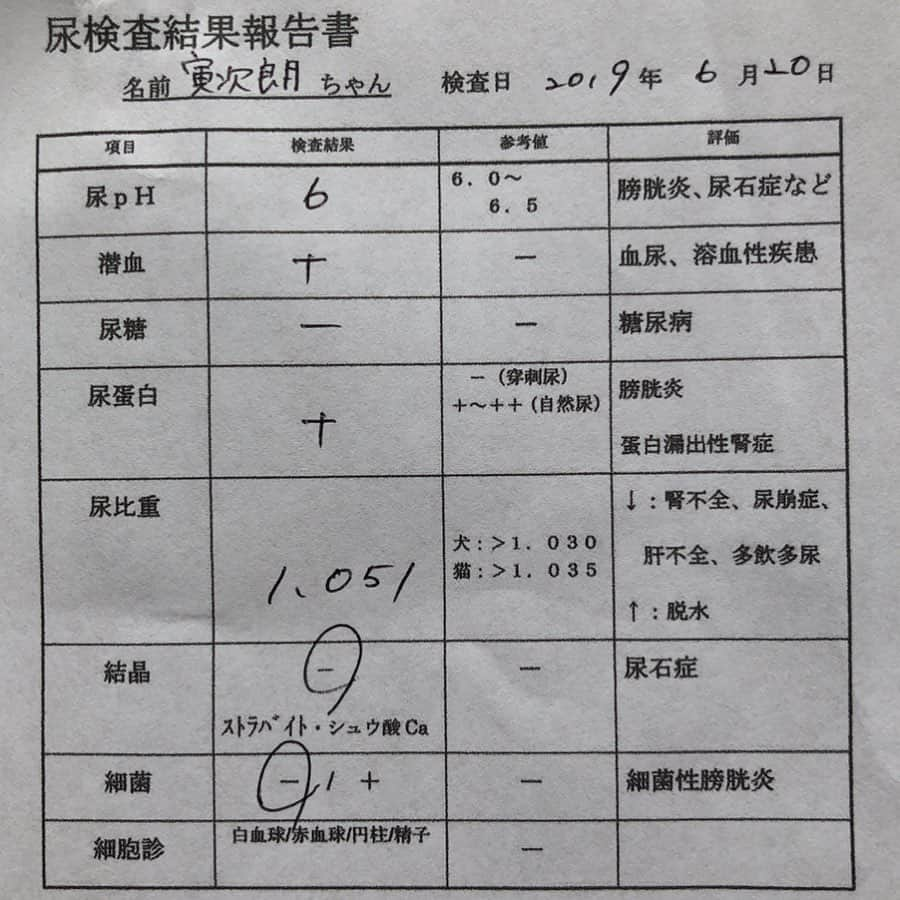 尿検査結果報告書
名前 寅次朗 ちゃん 検査日 2019年 6月20日
項目 検査結果 参考値 評価
尿pH 6 6.0～ 膀胱炎、尿石症など
6.5
潜血 + － 血尿、溶血性疾患
尿糖 － － 糖尿病
尿蛋白 + －（穿刺尿） 膀胱炎
+～++（自然尿）
蛋白漏出性腎症
尿比重 1.051 犬：＞1.030 ↓：腎不全、尿崩症、
猫：＞1.035 肝不全、多飲多尿
↑：脱水
結晶 － － 尿石症
ストラバイト・シュウ酸Ca
細菌 － / + － 細菌性膀胱炎
細胞診 白血球/赤血球/円柱/精子 －